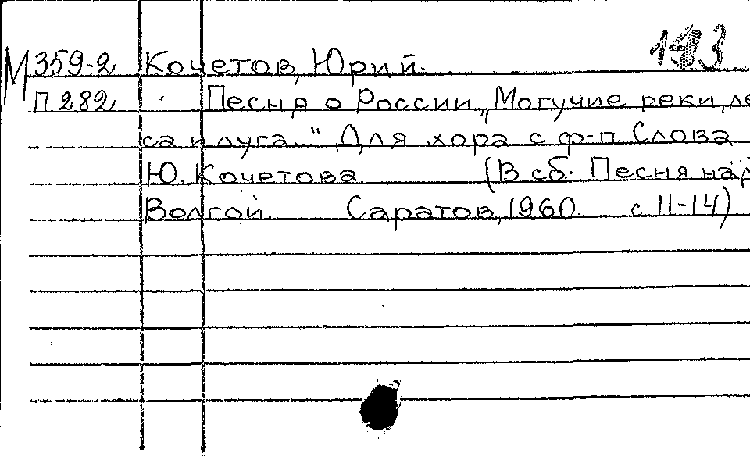 М 359-2 Кочетов, Юрий.
П 282 Песня о России „Могучие реки, ле
са и луга..." Для хора с ф-п. Слова
Ю. Кочетова (В сб. Песня над
Волгой. Саратов, 1960. с 11-14)